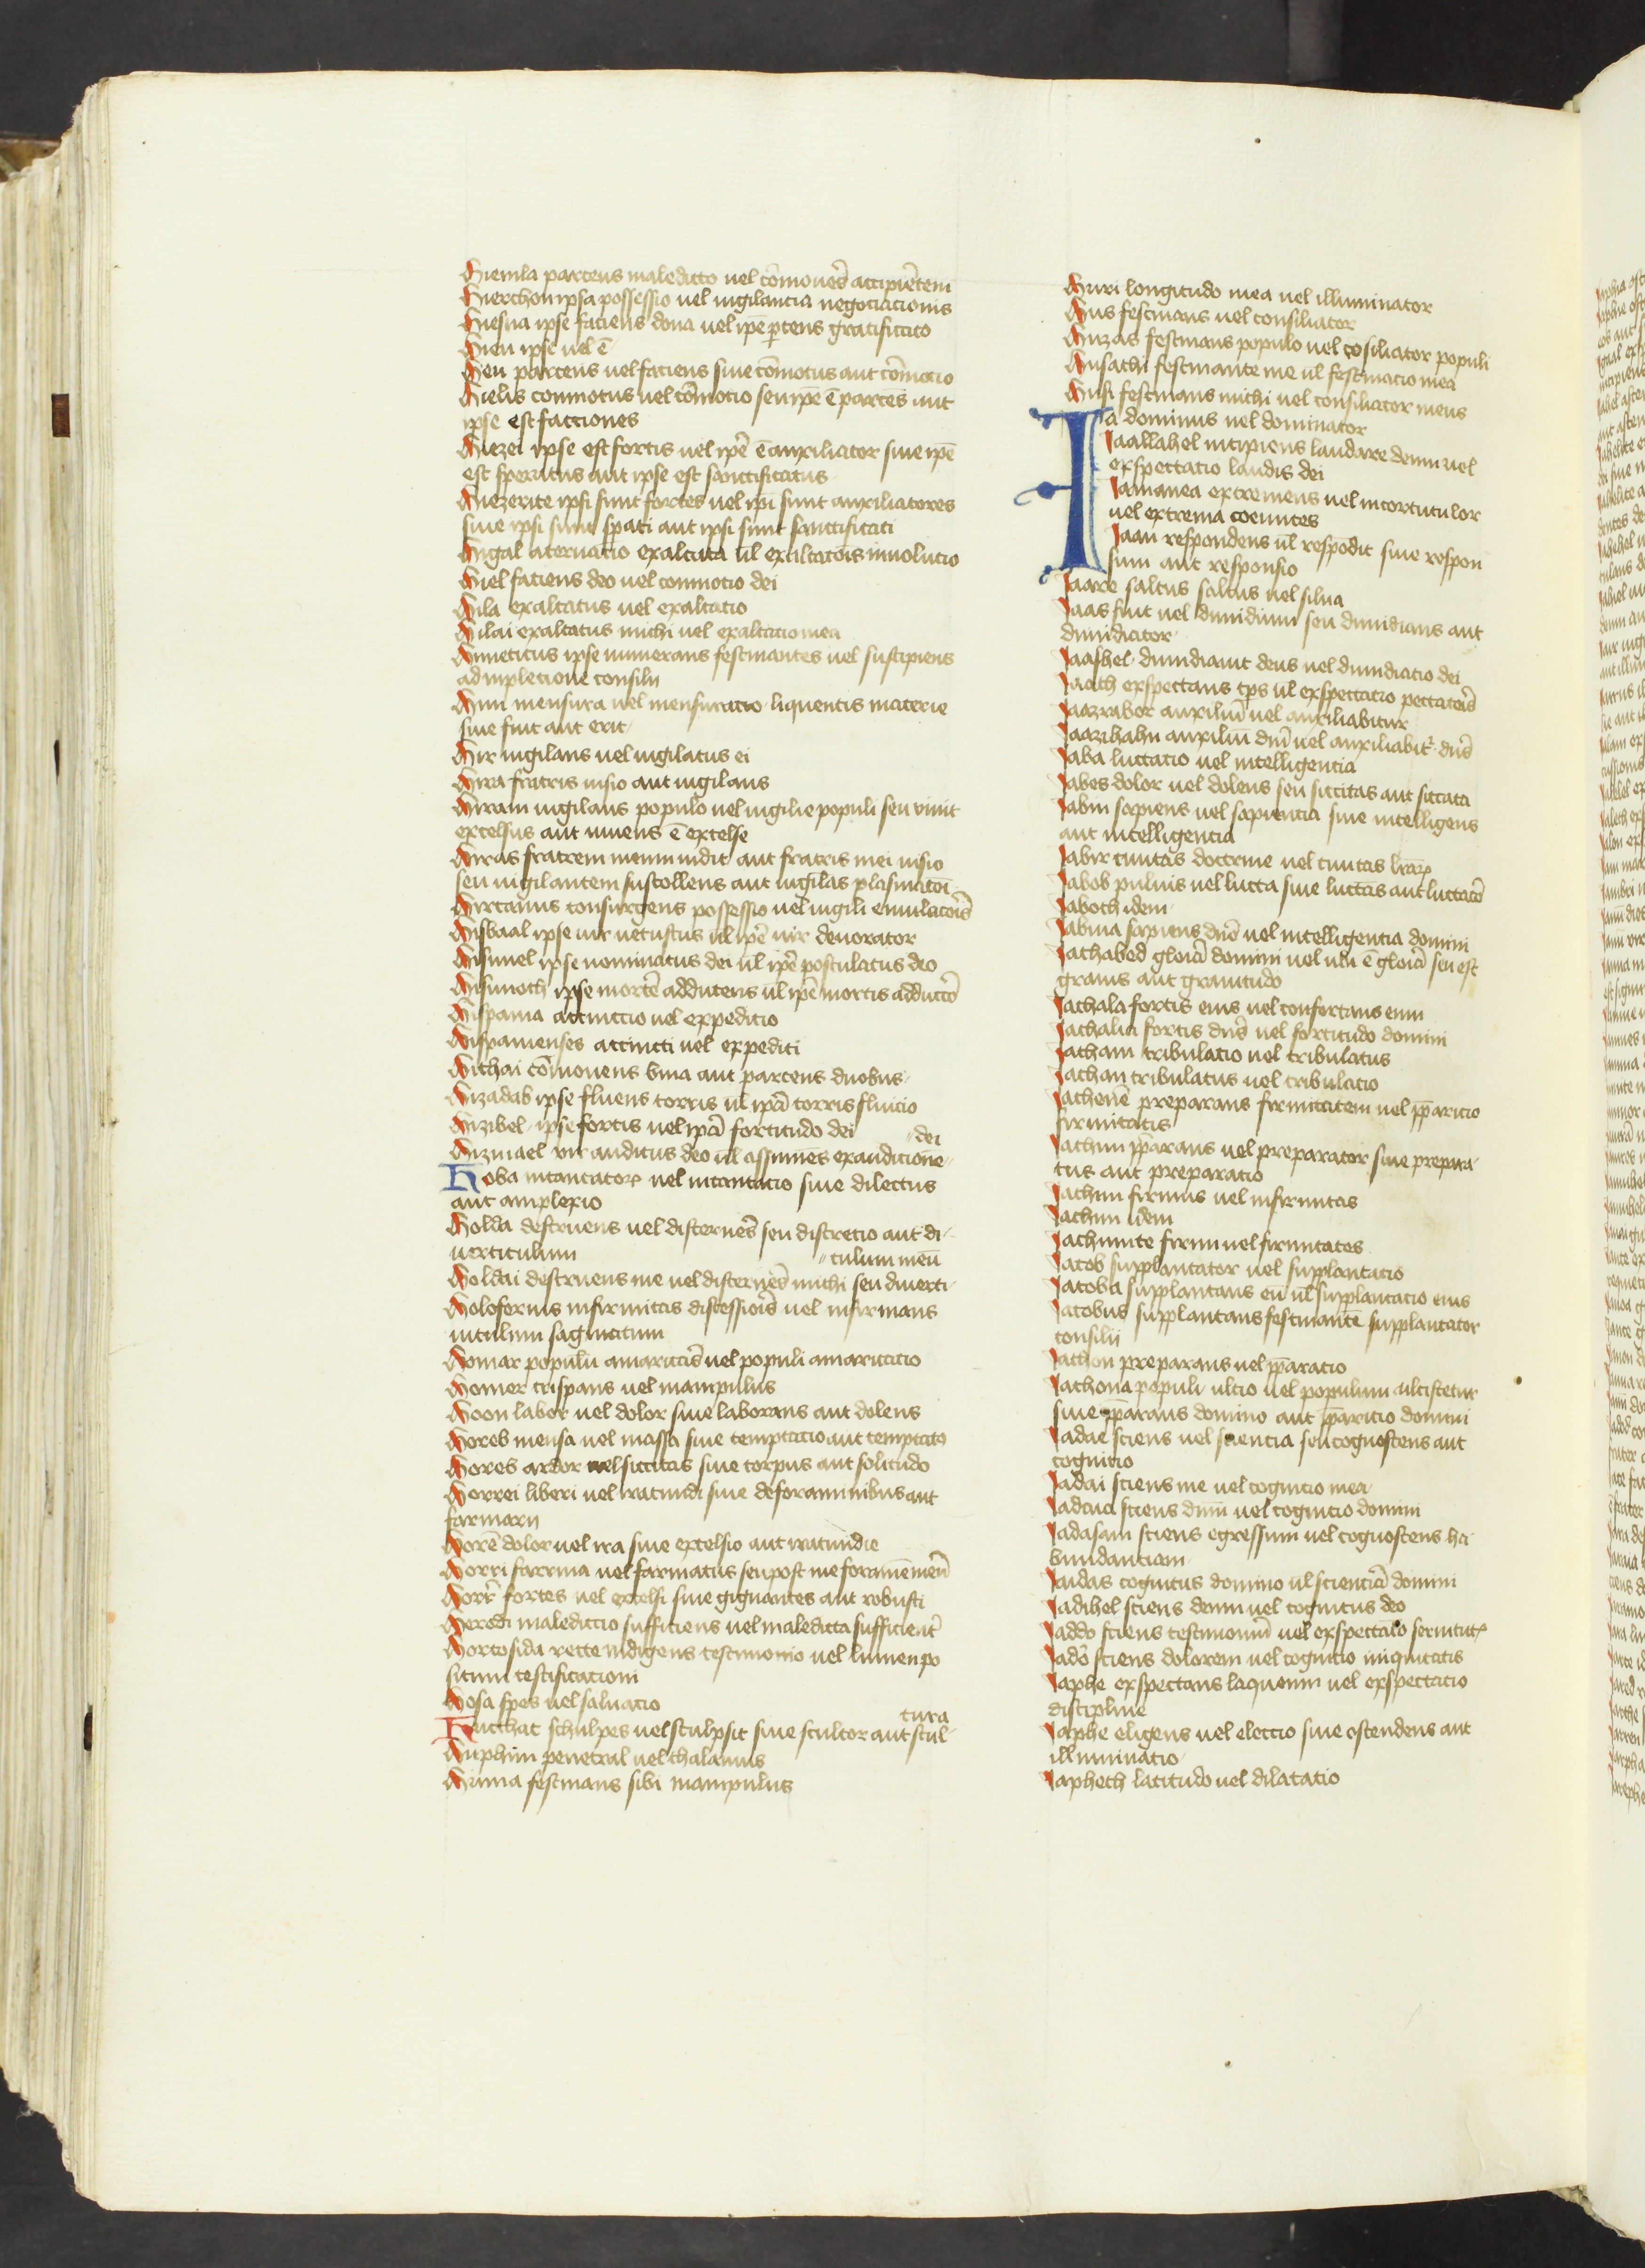 Hiemla parcens maledicto uel co᷇mone᷇s accipie᷇tem
Hierchon ipsa possessio uel uigilancia negociacionis
Hiesua ipse faciens dona uel ip̅e p̱cens gratificato
Hieu ipse uel e᷇
Heu parcens uel faciens siue co᷇motus aut co᷇mocio
Hielis conmotus uel co᷇mocio seu ip̅e e᷇ parces aut
ipse est facciones
Hiezei ipse est fortis uel ip̅e e᷇ auxiliator siue ip̅e
est speratus aut ipse est sanctificatus
Hiezerite ipsi sunt fortes uel ip̅i sunt auxiliatores
siue ipsi sunt spati aut ipsi sunt sanctificati
Higal aceruatio exaltata ul̅ exaltato᷇is inuolucio
Hiel faciens deo uel conmocio dei
Hila exaltatus uel exaltatio
Hilai exaltatus michi uel exaltatio mea
Himeticus ipse numerans festinantes uel suscipiens
ad inpletione consilii
Hin mensura uel mensuratio liquentis materie
siue fuit aut erit
Hir uigilans uel uigilatus ei
Hira fratris uisio aut uigilans
Hiram uigilans populo uel uigilie populi seu viuit
excelsus aut uiuens e᷇ excelse
Hiras fratrem meum uidit aut fratris mei uisio
seu uigilantem sustollens aut uigilas plasmato᷇i
Hircanus consurgens possessio uel uigili emulaco᷇is
Hisbaal ipse uir uetustus ul̅ ip̅e uir deuorator
Hismel ipse nominatus dei ul̅ ip̅e postulatus deo
Hismoth ipse morte᷇ adducens ul̅ ip̅e mortis adducto᷇
Hispania accinctio uel expeditio
Hispanienses accincti uel expediti
Hithai co᷇monens bina aut parcens duobus
Hizadab ipse fluens torris ul̅ ip̅a torris fluicio
Hizibel ipse fortis uel ip̅a fortitudo dei
Hizmael vir auditus deo ul̅ assumes exauditione
dei
Hoba incantator uel incantatio siue dilectus
aut amplexio
Holda destruens uel discerne᷇s seu discretio aut di
uerticulum
Holdai destruens me uel discerne᷇s michi seu diuerti
culum meu᷇
Holofornis infirmitas discessio᷇is uel infirmans
uitulum saginatum
Homar populi amaritas uel populi amaricatio
Homer crispans uel manipulus
Hoon labor uel dolor siue laborans aut dolens
Horeb mensa uel massa siue temptatio aut temptato
Hores ardor uel siccitas siue corpus aut solitudo
Horrei liberi uel iracundi siue de foraminibus aut
farinarii
Hore᷇ dolor uel ira siue excelsio aut iracundie
Horri farrina uel farinatus seu post me forame᷇ meu᷇
Horr̅ fortes uel excelsi siue gignantes aut robusti
Heredi maledictio sufficiens uel maledicta sufficient̅
Hortosida recte indigens testimonio uel lumen po
situm testificationi
Hosa spes uel saluatio
Hucchac schulpes uel sculpsit siue scultor aut scul
tura
Huphim penetral uel thalamus
Huma festinans sibi manipulus
Huri longitudo mea uel illuminator
Hus festinans uel consiliator
Huzas festinans populo uel co᷇siliator populi
Husathi festinante me ul̅ festinacio mea
Husi festinans michi uel consiliator meus
Ia dominus uel dominator
Iaallahel incipiens laudare deum uel
exspectatio laudis dei
Iamanea extremens uel incortutulor
uel extrema coeuntes
Iaan respondens ul̅ respo᷇dit siue respon
sum aut responsio
Iaare saltus saltus uel silua
Iaas fuit uel dimidium seu dimidians aut
dimidiator
Iaashel dimidiauit deus uel dimidiatio dei
Iaath exspectans tp̅s ul̅ exspectatio peccato᷇is
Iaazrabor auxiliu᷇ uel auxiliabitur
Iaazihahu auxiliu᷇ dn̅i uel auxiliabit̅ dn̅s
Iaba luctatio uel intelligentia
Iabes dolor uel dolens seu siccitas aut siccata
Iabin sapiens uel sapientia siue intelligens
aut intelligentia
Iabir ciuitas doctrine uel ciuitas lr̅aꝝ
Iabob puluis uel lucta siue luctas aut luctato᷇
Iaboth idem
Iabina sapiens dn̅e uel intelligentia domini
Iachabed gloria᷇ domini uel ubi e᷇ gloria᷇ seu est
grauis aut grauitudo
Iachala fortis eius uel confortans eum
Iachalia fortis dn̅s uel fortitudo domini
Iacham tribulatio uel tribulatus
Iachan tribulatus uel tribulacio
Iachene᷇ preparans firmitatem uel pp̅aratio
firmitatis
Iachim pp̅arans uel preparator siue prepara
tus aut preparatio
Iachim firmus uel infirmitas
Iachim idem
Iachimite firmi uel firmitates
Iacob supplantator uel supplantacio
Iacoba supplantans eu᷇ ul̅ supplantatio eius
Iacobus supplantans festinante᷇ supplantator
consilii
Iachon preparans uel pp̅aratio
Iachona populi ultio uel populum ulciscetur
siue pp̅arans domino aut pp̅aratio domini
Iadae sciens uel sciencia seu cognoscens aut
cognitio
Iadai sciens me uel cognitio mea
Iadaia sciens dn̅m uel cognitio domini
Iadasam sciens egressum uel cognoscens ha
bundantiam
Iaidas cognitus domino ul̅ scientia᷇ domini
Iadihel sciens deum uel cognitus deo
Iaddo sciens testimoniu᷇ uel exspectatio seruitutꝫ
Iado᷇ sciens dolorem uel cognitio iniquitatis
Iaphe exspectans laqueum uel exspectatio
discipline
Iaphe eligens uel electio siue ostendens aut
illuminatio
Iapheth latitudo uel dilatatio